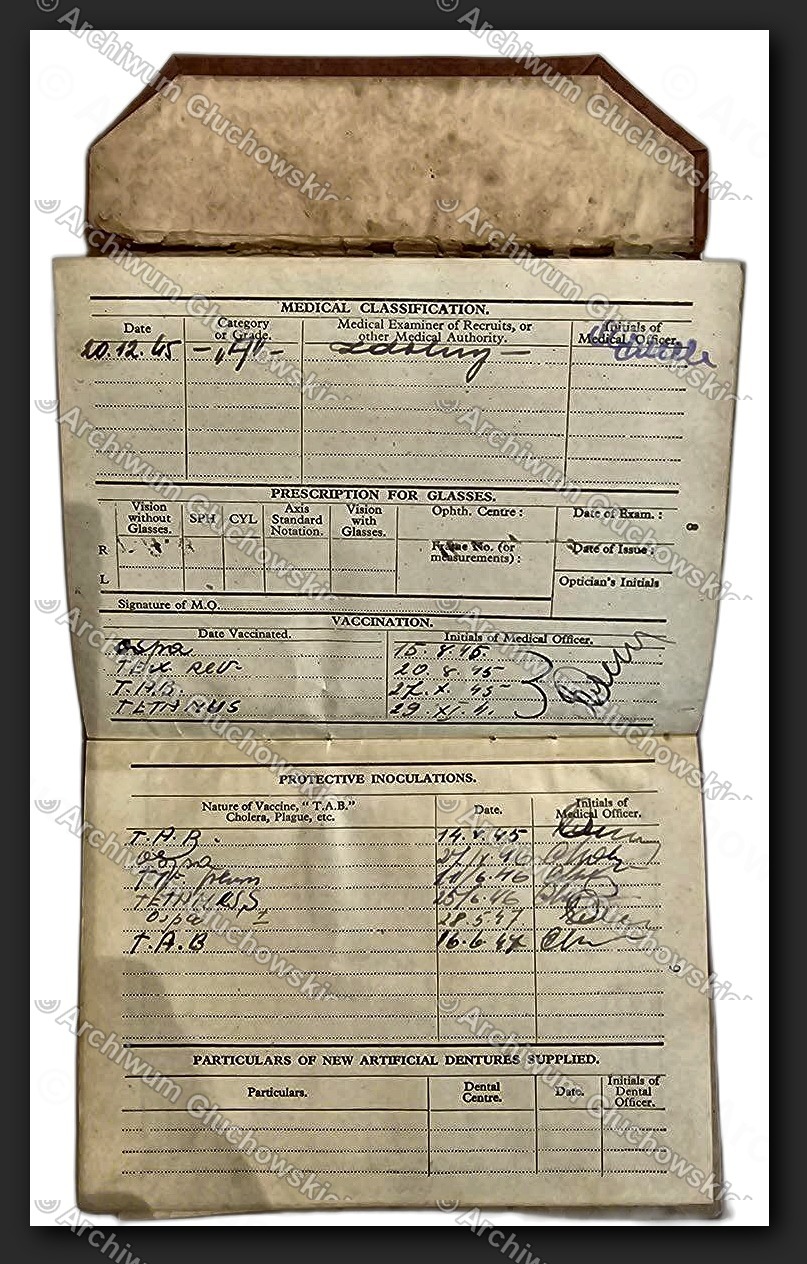 © Archiwum Głuchowskich
MEDICAL CLASSIFICATION.
Date Category or Grade. Medical Examiner of Recruits, or other Medical Authority. Initials of Medical Officer.
20.12.45 - „A" -
PRESCRIPTION FOR GLASSES.
Vision without Glasses. SPH CYL Axis Standard Notation. Vision with Glasses. Ophth. Centre : Date of Exam. :
R Frame No. (or measurements) : Date of Issue :
L Optician's Initials
Signature of M.O.
8
VACCINATION.
Date Vaccinated. Initials of Medical Officer.
ospa 15.8.45
TEx rev 20.8.45
T.A.B. 27.X.45
TETANUS 29.XI.
PROTECTIVE INOCULATIONS.
Nature of Vaccine, "T.A.B." Cholera, Plague, etc. Date. Initials of Medical Officer.
T.A.B. 14.X.45
ospa
11/6.46
TETANUS 25/6.46
Ospa 28.5.47
T.A.B 16.6.47
9
PARTICULARS OF NEW ARTIFICIAL DENTURES SUPPLIED.
Particulars. Dental Centre. Date. Initials of Dental Officer.